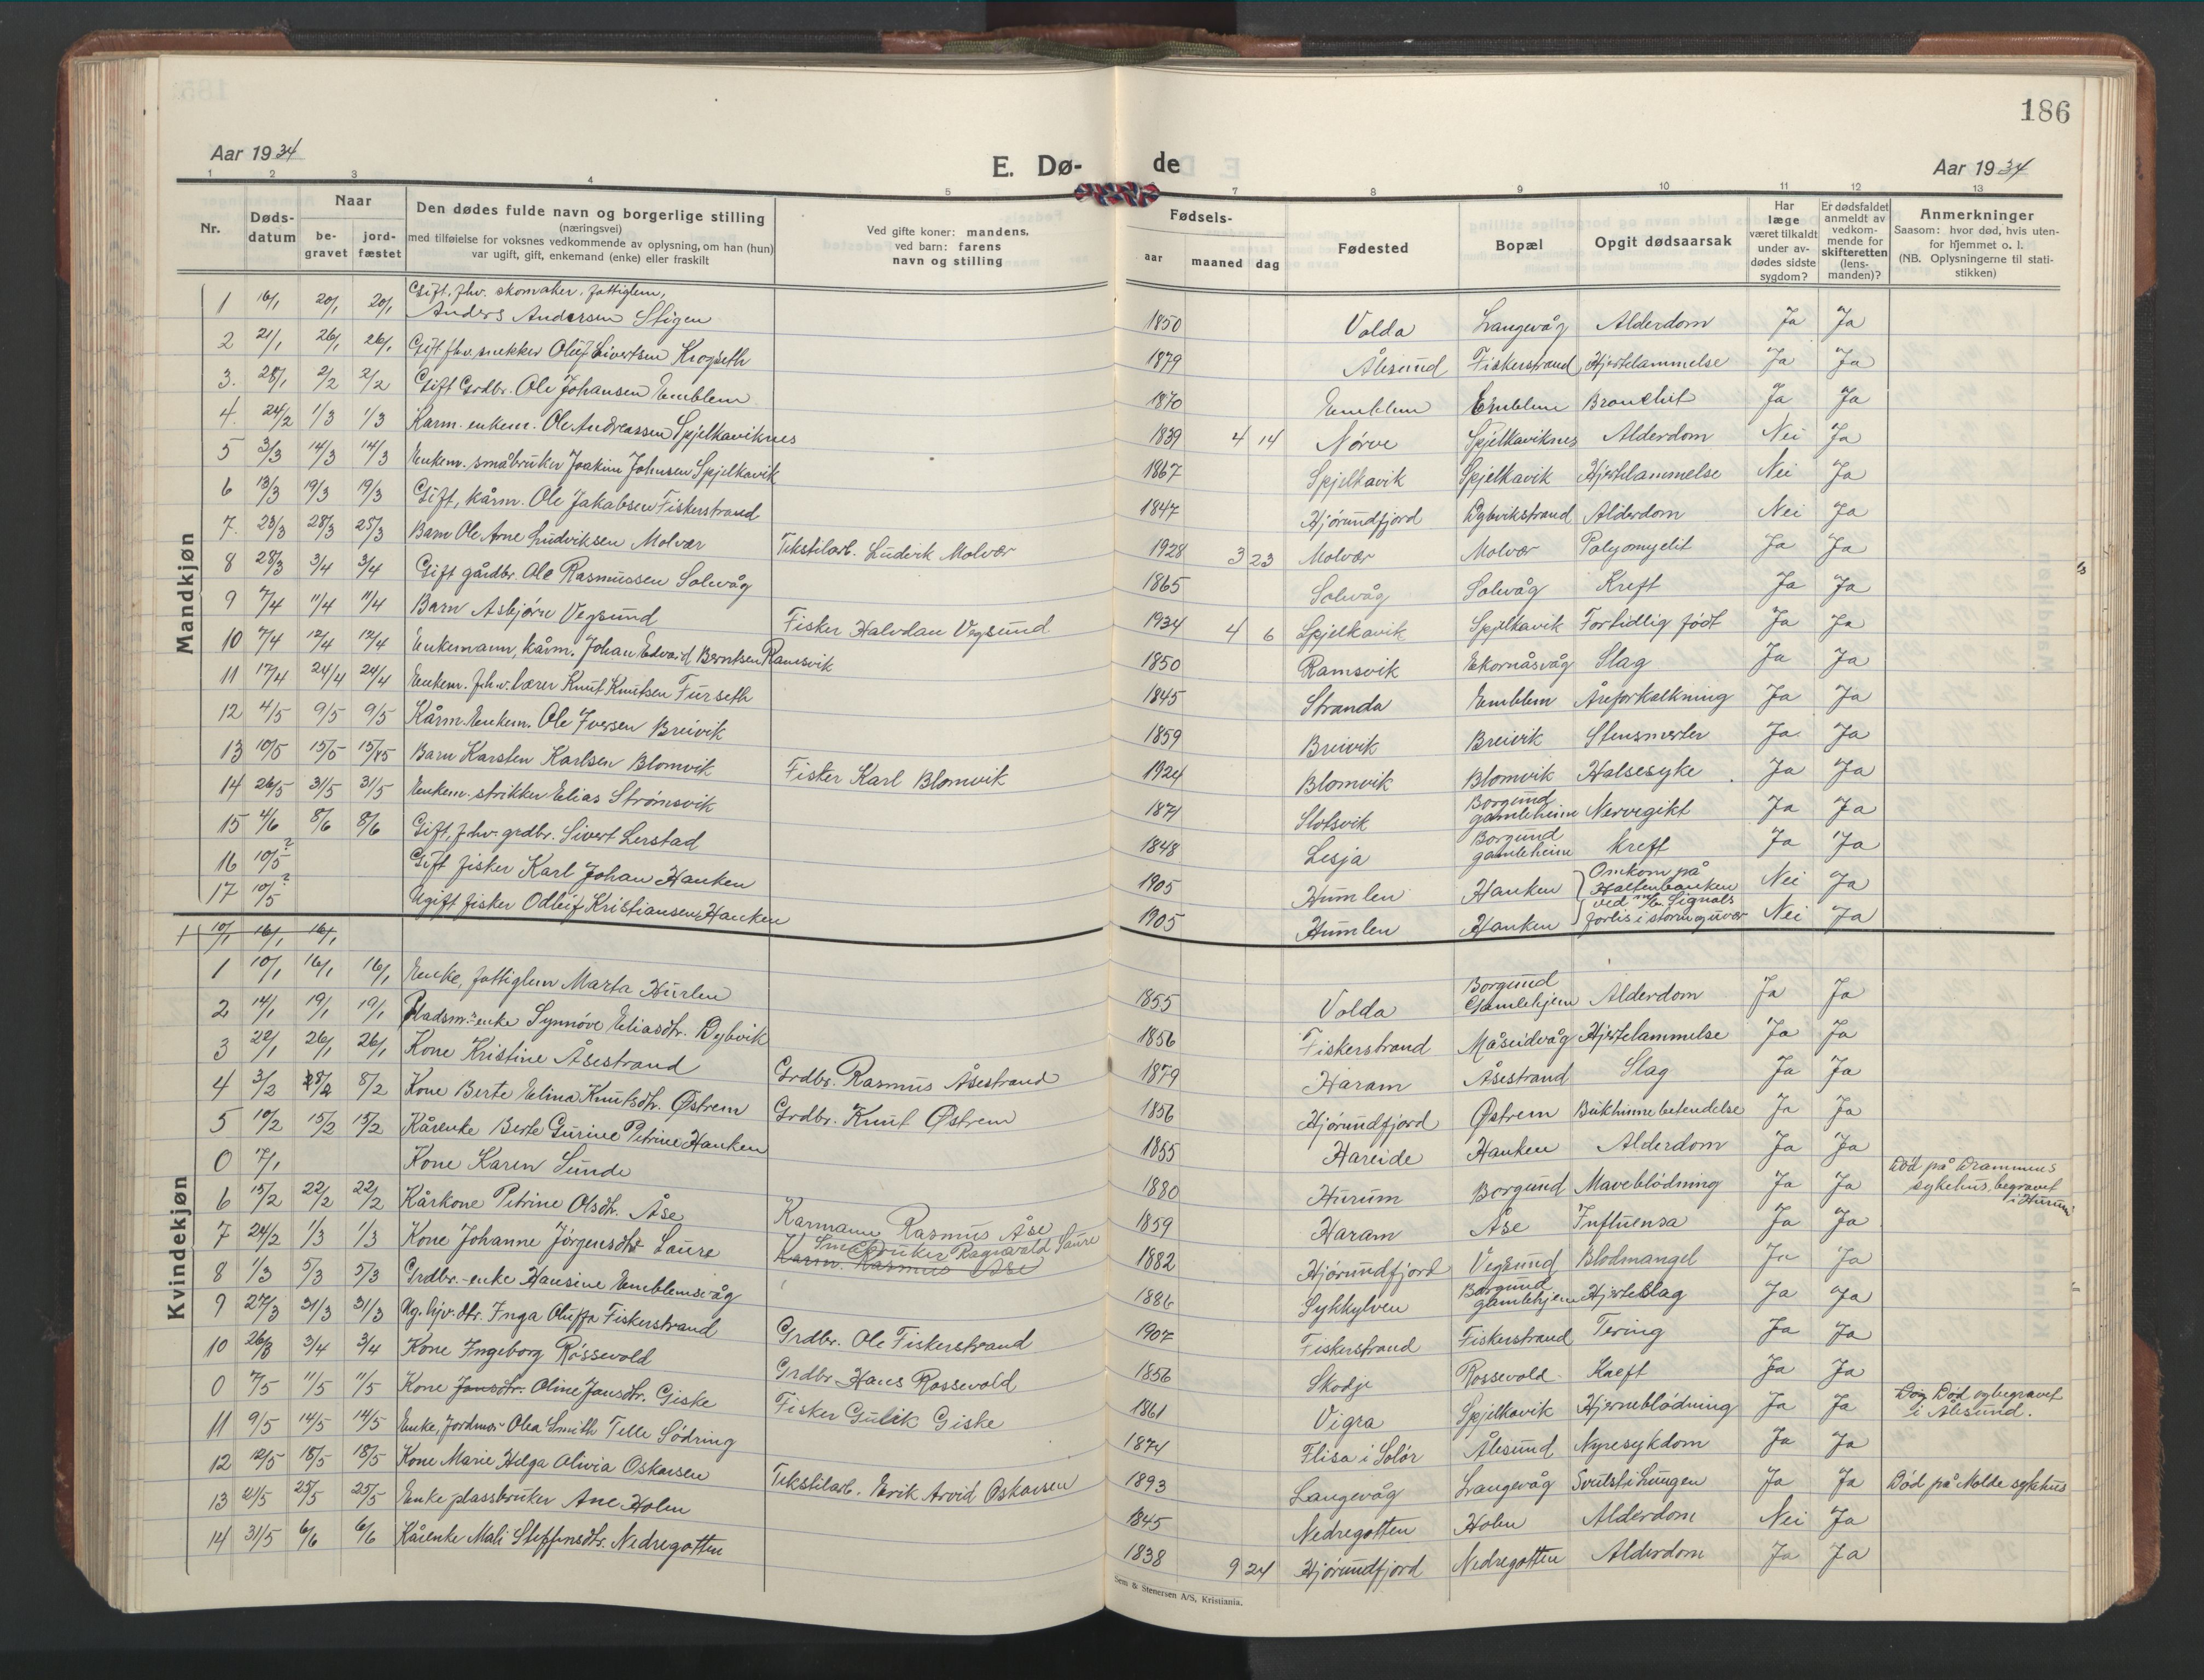 186
Aar 1934
E. Dø-
de
Aar 1934
1 2 3 4 5 7 8 9 10 11 12 13
Nr.
Døds-
datum
Naar
be-
gravet
jord-
fæstet
Den dødes fulde navn og borgerlige stilling
(næringsvei)
med tilføielse for voksnes vedkommende av oplysning, om han (hun)
var ugift, gift, enkemand (enke) eller fraskilt
Ved gifte koner: mandens,
ved barn: farens
navn og stilling
Fødsels-
aar maaned dag
Fødested
Bopæl
Opgit dødsaarsak
Har
læge
været tilkaldt
under av-
dødes sidste
sygdom?
Er dødsfaldet
anmeldt av
vedkom-
mende for
skifteretten
(lens-
manden)?
Anmerkninger
Saasom: hvor død, hvis uten-
for hjemmet o. l.
(NB. Oplysningerne til stati-
stikken)
Mandkjøn
1 16/1 20/1 20/1 Gift, fhv. skomaker, fattiglem,
Anders Andersen Stigen 1850 Volda Langevåg Alderdom Ja Ja
2 21/1 26/1 26/1 Gift fhv. snekker Oluf Sivertsen Krogseth 1879 Ålesund Fiskerstrand Hjertelammelse Ja Ja
3. 28/1 2/2 2/2 Gift Grdbr. Ole Johansen Emblem 1870 Emblem Emblem Bronchit Ja Ja
4. 24/2 1/3 1/3 Karm. enkem. Ole Andreassen Spjelkaviknes 1839 4 14 Nørve Spjelkaviknes Alderdom Nei Ja
5 3/3 14/3 14/3 Enkem. småbruker Joakim Johnsen Spjelkavik 1867 Spjelkavik Spjelkavik Hjertelammelse Nei Ja
6 13/3 19/3 19/3 Gift, kårm. Ole Jakobsen Fiskerstrand 1847 Hjørundfjord Dybvikstrand Alderdom Nei Ja
7. 23/3 28/3 25/3 Barn Ole Arne Ludviksen Molvær Tekstilarb. Ludvik Molvær 1928 3 23 Molvær Molvær Polyomyelit Ja Ja
8 28/3 3/4 3/4 Gift gårdbr. Ole Rasmussen Solevåg 1865 Solevåg Solevåg Kreft Ja Ja
9 7/4 11/4 11/4 Barn Asbjørn Vegsund Fisker Halvdan Vegsund 1934 4 6 Spjelkavik Spjelkavik Fortidlig født Ja Ja
10 7/4 12/4 12/4 Enkemann, kårm. Johan Edvard Berntsen Ramsvik 1850 Ramsvik Ekornåsvåg Slag Ja Ja
11 17/4 24/4 24/4 Enkem. fhv. lærer Knut Knutsen Furseth 1845 Stranda Emblem Åreforkalkning Ja Ja
12 4/5 9/5 9/5 Kårm. Enkem. Ole Iversen Breivik 1859 Breivik Breivik Stensmerter Ja Ja
13 10/5 15/5 15/5 Barn Karsten Karlsen Blomvik Fisker Karl Blomvik 1924 Blomvik Blomvik Halsesyke Ja Ja
14 26/5 31/5 31/5 Enkem. strikker Elias Strømsvik 1871 Slotsvik Borgund
gamleheim Nervegikt Ja Ja
15 4/6 8/6 8/6 Gift, fhv. grdbr. Sivert Lerstad 1848 Lesja Borgund
gamleheim Kreft Ja Ja
16 10/5? Gift fisker Karl Johan Hanken 1905 Humlen Hanken Omkom på
Haltenbanken Nei Ja
17 10/5? Ugift fisker Odleif Kristiansen Hanken 1905 Humlen Hanken ved m/k Signals
forlis i storm og uvær Nei Ja
1 10/1 16/1 16/1
Kvindekjøn
1 10/1 16/1 16/1 Enke, fattiglem Marta Hurlen 1855 Volda Borgund
Gamlehjem Alderdom Ja Ja
2 14/1 19/1 19/1 Pladsm.-enke Synnøve Eliasdtr. Dybvik 1856 Fiskerstrand Måseidvåg Hjertelammelse Ja Ja
3 22/1 26/1 26/1 Kone Kristine Åsestrand Grdbr. Rasmus Åsestrand 1879 Haram Åsestrand Slag Ja Ja
4 3/2 8/2 8/2 Kone Berte Elina Knutsdtr. Østrem Grdbr. Knut Østrem 1856 Hjørundfjord Østrem Bukhinnebetendelse Ja Ja
5 10/2 15/2 15/2 Kårenke Berte Gurine Petrine Hanken 1855 Hareide Hanken Alderdom Ja Ja
0 7/1 Kone Karen Sunde 1880 Hurum Borgund Maveblødning Ja Ja Død på Drammens
sykehus, begravet
i Hurum
6 15/2 22/2 22/2 Kårkone Petrine Olsdtr. Åse Karmann Rasmus Åse 1859 Haram Åse Influensa Ja Ja
7 24/2 1/3 1/3 Kone Johanne Jørgensdtr Saure Småbruker Ragnvald Saure
Karm. Rasmus Åse 1882 Hjørundfjord Vegsund Blodmangel Ja Ja
8 1/3 5/3 5/3 Grdbr.-enke Hansine Emblemsvåg 1886 Sykkylven Borgund
gamlehjem Hjerteslag Ja Ja
9 27/3 31/3 31/3 Ug. Gjv. dtr. Inga Oluffa Fiskerstrand Grdbr. Ole Fiskerstrand 1907 Fiskerstrand Fiskerstrand Tering Ja Ja
10 26/3 3/4 3/4 Kone Ingeborg Røssevold Grdbr. Hans Rossevold 1856 Skodje Rossevold Kreft Ja Ja
0 7/5 11/5 11/5 Kone Jansdtr. Oline Jansdtr. Giske Fisker Gulik Giske 1861 Vigra Spjelkavik Hjerneblødning Ja Ja Død og begravet
i Ålesund.
11 9/5 14/5 14/5 Enke, Jordmor Olea Smith Telle Södring 1874 Flisa i Solør Ålesund Nyresykdom Ja Ja
12 12/5 18/5 18/5 Kone Marie Helga Olivia Oskarsen Tekstilarb. Erik Arvid Oskarsen 1893 Langevåg Langevåg Svulst i Lungen Ja Ja Død på Molde sykehus
13 21/5 25/5 25/5 Enke plassbruker Ane Holen 1845 Nedregotten Holen Alderdom Nei Ja
14 31/5 6/6 6/6 Kårenke Mali Steffensdtr. Nedregotten 1838 9 24 Hjørundfjord Nedregotten Alderdom Ja Ja
Sem & Stenersen A/S, Kristiania.